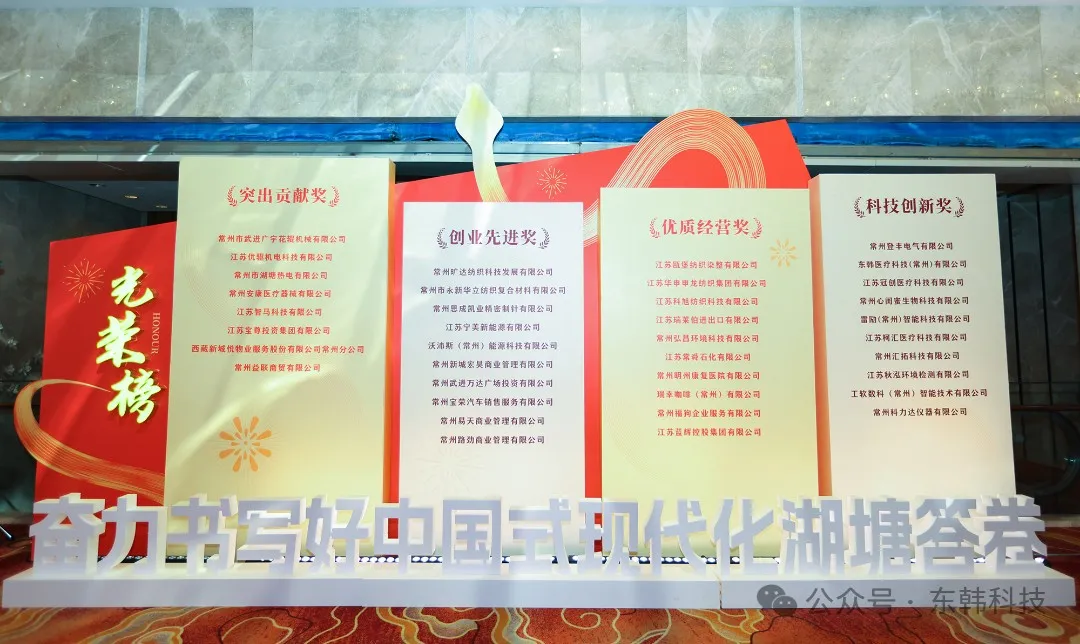 光荣榜
HONOUR
突出贡献奖
常州市武进广宇花辊机械有限公司
江苏优辊机电科技有限公司
常州市湖塘热电有限公司
常州安康医疗器械有限公司
江苏智马科技有限公司
江苏宝尊投资集团有限公司
西藏新城悦物业服务股份有限公司常州分公司
常州益联商贸有限公司
创业先进奖
常州旷达纺织科技发展有限公司
常州市永新华立纺织复合材料有限公司
常州恩成凯业精密制针有限公司
江苏宁美新能源有限公司
沃沛斯（常州）能源科技有限公司
常州新城宏昊商业管理有限公司
常州武进万达广场投资有限公司
常州宝荣汽车销售服务有限公司
常州易天商业管理有限公司
常州路劲商业管理有限公司
优质经营奖
江苏瓯堡纺织染整有限公司
江苏华申甲龙纺织集团有限公司
江苏科旭纺织科技有限公司
江苏瑞莱伯进出口有限公司
常州弘昌环境科技有限公司
江苏常舜石化有限公司
常州明州康复医院有限公司
瑞幸咖啡（常州）有限公司
常州福狗企业服务有限公司
江苏蓝辉控股集团有限公司
科技创新奖
常州登丰电气有限公司
东韩医疗科技(常州)有限公司
江苏冠创医疗科技有限公司
常州心闺蜜生物科技有限公司
雷励(常州)智能科技有限公司
江苏柯汇医疗科技有限公司
常州汇拓科技有限公司
江苏秋泓环境检测有限公司
工软数科（常州）智能技术有限公司
常州科力达仪器有限公司
奋力书写好中国式现代化湖塘答卷
公众号·东韩科技